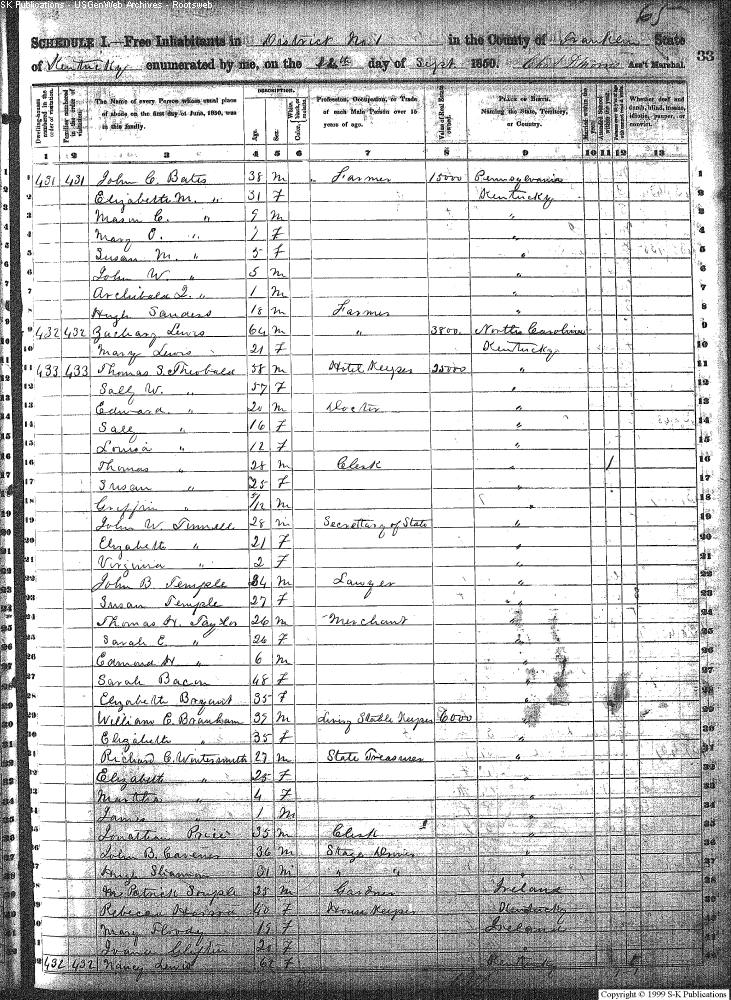 SK Publications - USGenWeb Archives - Rootsweb
65
SCHEDULE I.—Free Inhabitants in District No 1 in the County of Franklin State
of Kentucky enumerated by me, on the 12th day of Sept 1850. Ass't Marshal. 33
DESCRIPTION.
Dwelling-houses numbered in the order of visitation.
Families numbered in the order of visitation.
The Name of every Person whose usual place of abode on the first day of June, 1850, was in this family.
Age.
Sex.
White, Color, black, or mulatto.
Profession, Occupation, or Trade of each Male Person over 15 years of age.
Value of Real Estate owned.
PLACE OF BIRTH. Naming the State, Territory, or Country.
Married within the year.
Whether deaf and dumb, blind, insane, idiotic, pauper, or convict.
1 2 3 4 5 6 7 8 9 10 11 12 13
1 431 431 John C. Bates 38 m Farmer 15000 Pennsylvania 1
2 Elizabeth M. " 31 F Kentucky 2
3 Mason C. " 9 m " 3
4 Mary O. " 7 F " 4
5 Susan M. " 5 F " 5
6 John W " 5 m " 6
7 Archibald " 1 m " 7
8 Hugh Sanders 18 m Farmer " 8
9 432 432 Zachary Lewis 64 m " 3800 North Carolina 9
10 Mary Lewis 21 F Kentucky 10
11 433 433 Thomas S. Theobald 58 m Hotel Keeper 25000 " 11
12 Sally W. " 57 F " 12
13 Edward " 20 m Doctor " 13
14 Sally " 16 F " 14
15 Louisa " 12 F " 15
16 Thomas " 28 m Clerk " 1 16
17 Susan " 25 F " 17
18 Griffin " /12 m " 18
19 John W. Finnell 28 m Secretary of State " 19
20 Elizabeth " 21 F " 20
21 Virginia " 2 F " 21
22 John B Temple 34 m Lawyer " 22
23 Susan Temple 27 F " 23
24 Thomas H. Taylor 26 m Merchant " 24
25 Sarah E. " 26 F " 25
26 Edmond H " 6 m " 26
27 Sarah Bacon 48 F " 27
28 Elizabeth Bryant 35 F " 28
29 William E. Branham 39 m Livery Stable Keeper 6000 " 29
30 Elizabeth " 35 F " 30
31 Richard C. Wintersmith 27 m State Treasurer " 31
32 Elizabeth " 25 F " 32
33 Martha " 4 F " 33
34 James " 1 M " 34
35 Jonathan Price 35 m Clerk " 35
36 John B. Cavener 36 m Stage Driver " 36
37 Hugh Shannon 31 m " " " 37
38 Patrick 25 m Gardner Ireland 38
39 Rebecca 40 F House Keeper Kentucky 39
40 Mary Floody 19 F Ireland 40
41 20 F " 41
42 432 432 Nancy Lewis 62 F Kentucky 42
Copyright © 1999 S-K Publications